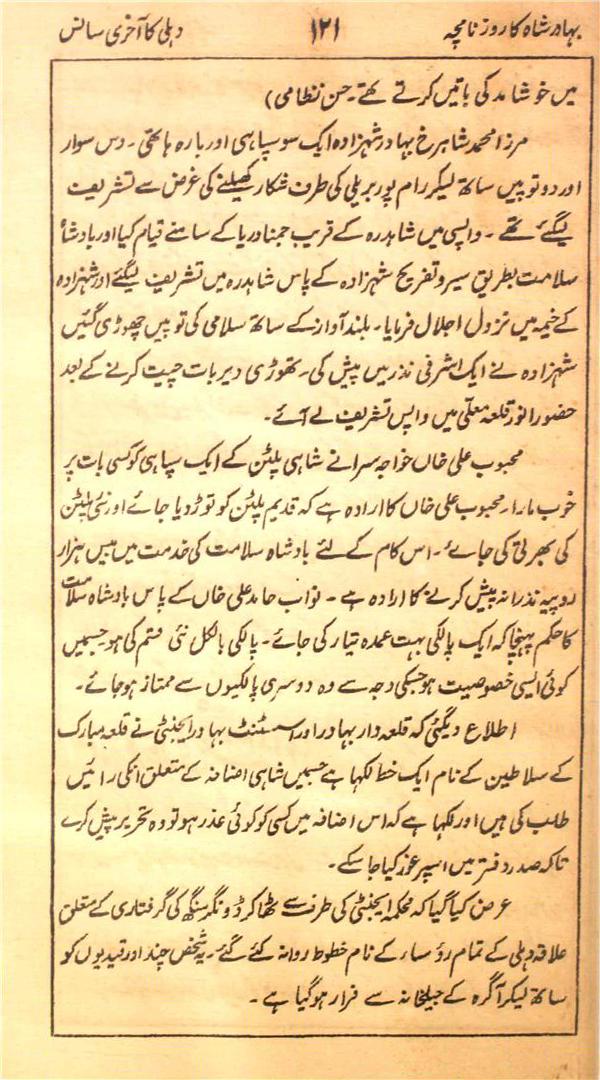 بہادر شاہ کا روزنامچہ ۱۲۱ دہلی کا آخری سانس
میں خوشامد کی باتیں کرتے تھے۔ حسن نظامی)
مرزا محمد شاہرخ بہادر شہزادہ ایک سو سپاہی اور بارہ ہاتھی۔ دس سوار
اور دو توپیں ساتھ لیکر رام پور بریلی کی طرف شکار کھیلنے کی غرض سے تشریف
لیگئے تھے۔ واپسی میں شاہدرہ کے قریب جمنا دریا کے سامنے قیام کیا اور بادشاہ
سلامت بطریق سیر و تفریح شہزادہ کے پاس شاہدرہ میں تشریف لیگئے اور شہزادہ
کے خیمہ میں نزول اجلال فرمایا۔ بلند آواز کے ساتھ سلامی کی توپیں چھوڑی گئیں
شہزادہ نے ایک اشرفی نذر میں پیش کی۔ تھوڑی دیر بات چیت کرنے کے بعد
حضور انور قلعہ معلّیٰ میں واپس تشریف لے آئے۔
محبوب علی خاں خواجہ سرا نے شاہی پلٹن کے ایک سپاہی کو کسی بات پر
خوب مارا۔ محبوب علی خاں کا ارادہ ہے کہ قدیم پلٹن کو توڑ دیا جائے اور نئی پلٹن
کی بھرتی کی جائے۔ اس کام کے لئے بادشاہ سلامت کی خدمت میں بیس ہزار
روپیہ نذرانہ پیش کرنے کا ارادہ ہے۔ نواب حامد علی خاں کے پاس بادشاہ سلامت
کا حکم پہنچا کہ ایک پالکی بہت عمدہ تیار کی جائے۔ پالکی بالکل نئی قسم کی ہو جسمیں
کوئی ایسی خصوصیت ہو جسکی وجہ سے وہ دوسری پالکیوں سے ممتاز ہو جائے۔
اطلاع دیگئی کہ قلعہ دار بہادر اور اسسٹنٹ بہادر ایجنٹی نے قلعہ مبارک
کے سلاطین کے نام ایک خط لکہا ہے جسمیں شاہی اضافہ کے متعلق انکی رائیں
طلب کی ہیں اور لکہا ہے کہ اس اضافہ میں کسی کو کوئی عذر ہو تو وہ تحریر پیش کرے
تاکہ صدر دفتر میں اسپر غور کیا جا سکے۔
عرض کیا گیا کہ محکمہ ایجنٹی کی طرف سے ٹھاکر ڈونگر سنگھ کی گرفتاری کے متعلق
علاقہ دہلی کے تمام رؤسار کے نام خطوط روانہ کئے گئے۔ یہ شخص چند اور قیدیوں کو
ساتھ لیکر آگرہ کے جیلخانہ سے فرار ہو گیا ہے۔